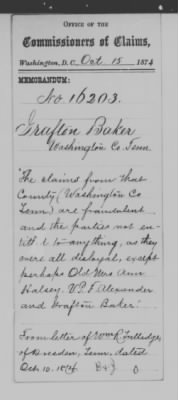 OFFICE OF THE
Commissioners of Claims,
Washington, D. C. Oct 15 1874
MEMORANDUM:
No. 16203.
Grafton Baker
Washington Co. Tenn.
"The claims from that
County (Washington Co
Tenn) are fraudulent
and the parties not en-
titl'd to anything, as they
were all disloyal, except
perhaps Old Mrs Ann
Halsey. V. P. F. Alexander
and Grafton Baker."
From letter of Wm R.
of Dresden, Tenn. dated
Oct. 10. 1874.